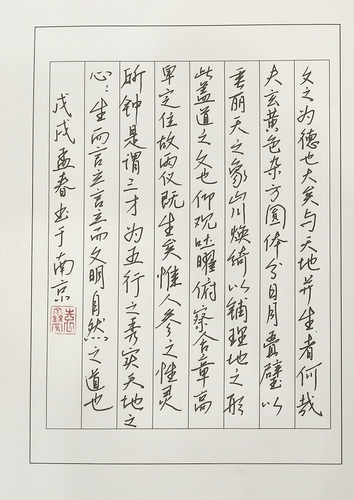 文之为德也大矣与天地并生者何哉
夫玄黄色杂方圓体分日月叠璧以
垂丽天之象山川焕绮以铺理地之形
此盖道之文也仰观吐曜俯察含章高
卑定位故两仪既生矣惟人参之性灵
所钟是谓三才为五行之秀实天地之
心:生而言立言立而文明自然之道也
戊戌孟春书于南京